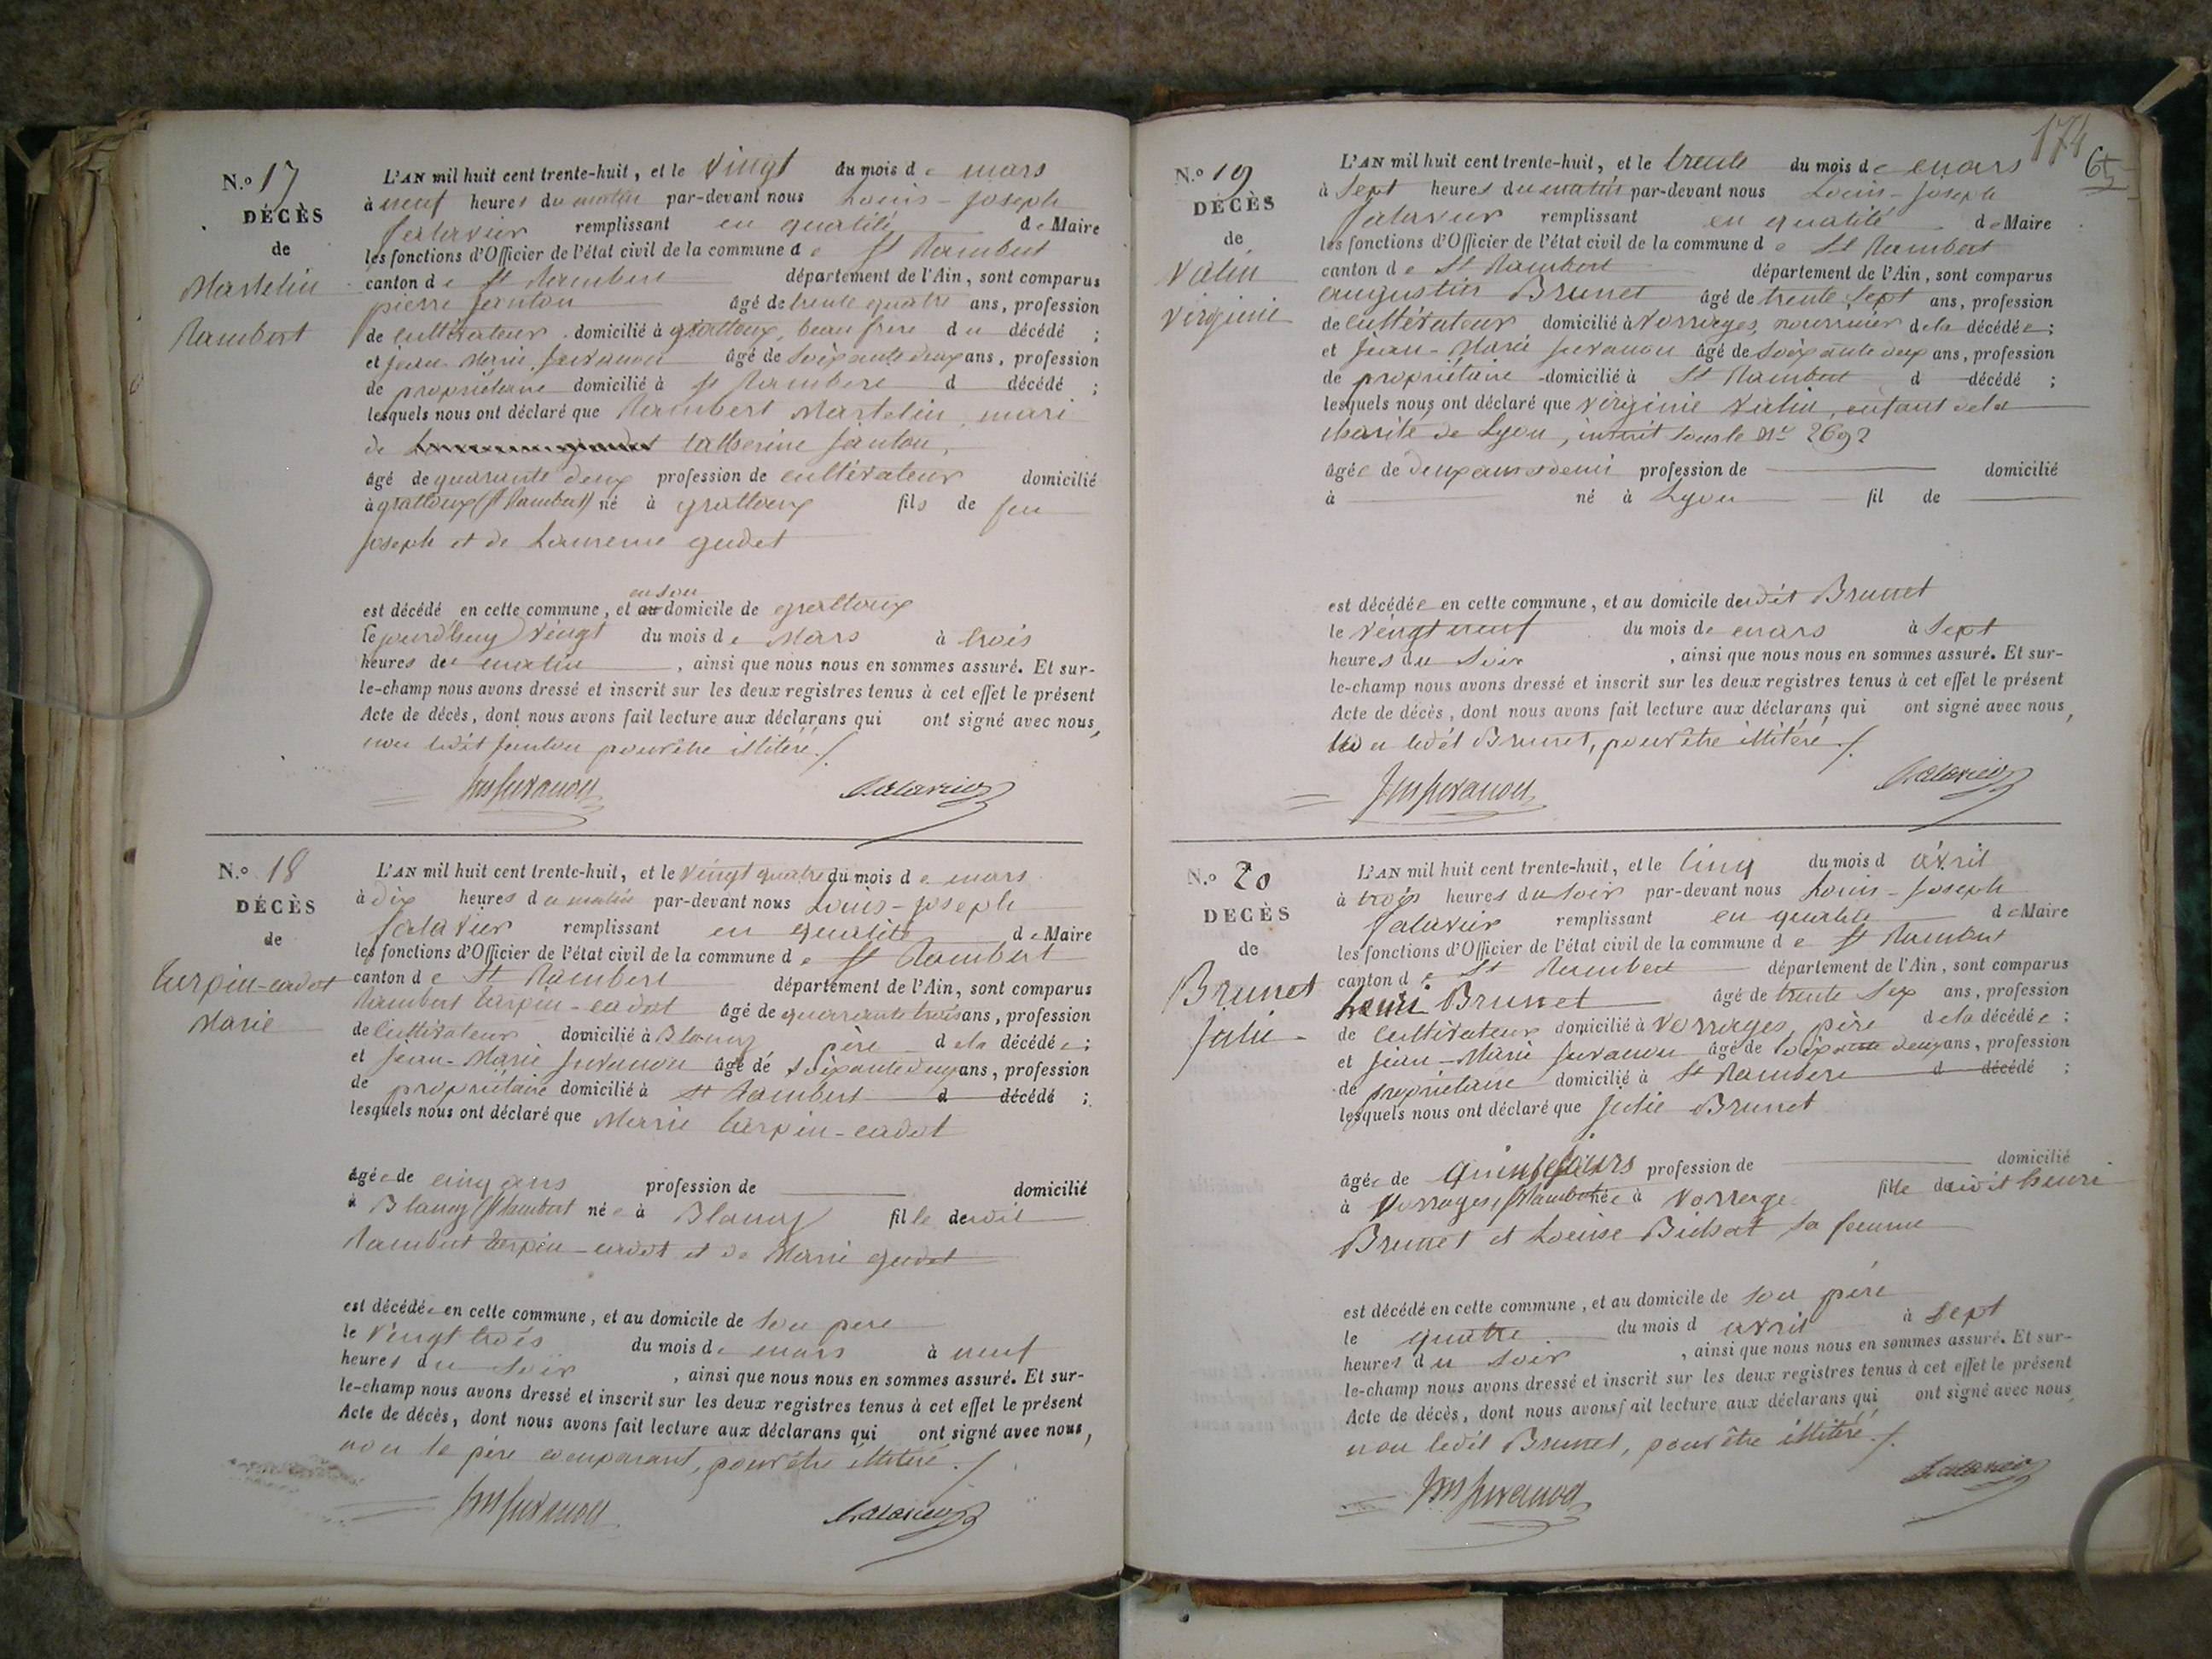 N.o 17
DÉCÈS
de
Martelin
Rambert
L'AN mil huit cent trente-huit, et le vingt du mois de mars
à neuf heures du matin par-devant nous Louis-Joseph
remplissant en qualité de Maire
les fonctions d'Officier de l'état civil de la commune de St Rambert
canton de St Rambert département de l'Ain, sont comparus
pierre Janton âgé de trente quatre ans, profession
de cultivateur domicilié à grattoux, beau frere du décédé ;
et jean-Marie Juvanon âgé de soixante deux ans, profession
de propriétaire domicilié à St Rambert d décédé ;
lesquels nous ont déclaré que Rambert Martelin, mari
de Catherine Janton,
âgé de quarante deux profession de cultivateur domicilié
à grattoux (St Rambert) né à grattoux fils de feu
joseph et de Laurence gudet
est décédé en cette commune, et en son domicile de grattoux
le jourd'huy vingt du mois de Mars à trois
heures de matin, ainsi que nous nous en sommes assuré. Et sur-
le-champ nous avons dressé et inscrit sur les deux registres tenus à cet effet le présent
Acte de décès, dont nous avons fait lecture aux déclarans qui ont signé avec nous,
non ledit Janton pour être illitéré ./.
Jm Juvanon
N.o 18
DÉCÈS
de
Turpin-cadet
Marie
L'AN mil huit cent trente-huit, et le vingt quatre du mois de mars
à dix heures du matin par-devant nous Louis-Joseph
remplissant en qualité de Maire
les fonctions d'Officier de l'état civil de la commune de St Rambert
canton de St Rambert département de l'Ain, sont comparus
Rambert turpin-cadet âgé de quarante trois ans, profession
de cultivateur domicilié à Blanaz père de la décédée ;
et jean-Marie Juvanon âgé de soixante deux ans, profession
de propriétaire domicilié à St Rambert d décédé ;
lesquels nous ont déclaré que Marie turpin-cadet
âgée de cinq ans profession de domicilié
à Blanaz St Rambert née à Blanaz fille dudit
Rambert turpin-cadet et de Marie gudet
est décédée en cette commune, et au domicile de son pere
le vingt trois du mois de mars à neuf
heures du soir, ainsi que nous nous en sommes assuré. Et sur-
le-champ nous avons dressé et inscrit sur les deux registres tenus à cet effet le présent
Acte de décès, dont nous avons fait lecture aux déclarans qui ont signé avec nous,
non le père comparant, pour être illitéré ./.
Jm Juvanon
174
65
N.o 19
DÉCÈS
de
Valin
Virginie
L'AN mil huit cent trente-huit, et le trente du mois de mars
à sept heures du matin par-devant nous Louis-Joseph
remplissant en qualité de Maire
les fonctions d'Officier de l'état civil de la commune de St Rambert
canton de St Rambert département de l'Ain, sont comparus
augustin Brunet âgé de trente sept ans, profession
de cultivateur domicilié à Vorrages, nourricier de la décédée ;
et Jean-Marie Juvanon âgé de soixante deux ans, profession
de propriétaire domicilié à St Rambert d décédé ;
lesquels nous ont déclaré que Virginie Valin, enfant de la
charité de Lyon, inscrit sous le No 2692
âgée de deux ans et demi profession de domicilié
à né à Lyon fil de
est décédée en cette commune, et au domicile dudit Brunet
le vingt neuf du mois de mars à sept
heures du soir, ainsi que nous nous en sommes assuré. Et sur-
le-champ nous avons dressé et inscrit sur les deux registres tenus à cet effet le présent
Acte de décès, dont nous avons fait lecture aux déclarans qui ont signé avec nous,
non ledit Brunet, pour être illitéré ./.
Jm Juvanon
N.o 20
DECÈS
de
Brunet
Julie
L'AN mil huit cent trente-huit, et le cinq du mois d avril
à trois heures du soir par-devant nous Louis-Joseph
remplissant en qualité de Maire
les fonctions d'Officier de l'état civil de la commune de St Rambert
canton de St Rambert département de l'Ain, sont comparus
henri Brunet âgé de trente six ans, profession
de cultivateur domicilié à Vorrages, père de la décédée ;
et Jean-Marie Juvanon âgé de soixante deux ans, profession
de propriétaire domicilié à St Rambert d décédé ;
lesquels nous ont déclaré que Julie Brunet
âgée de quinze jours profession de domicilié
à Vorrages St Rambert née à Vorrage fille dudit henri
Brunet et Louise Bichat sa femme
est décédé en cette commune, et au domicile de son père
le quatre du mois d avril à sept
heures du soir, ainsi que nous nous en sommes assuré. Et sur-
le-champ nous avons dressé et inscrit sur les deux registres tenus à cet effet le présent
Acte de décès, dont nous avons fait lecture aux déclarans qui ont signé avec nous,
non ledit Brunet, pour être illitéré ./.
Jm Juvanon